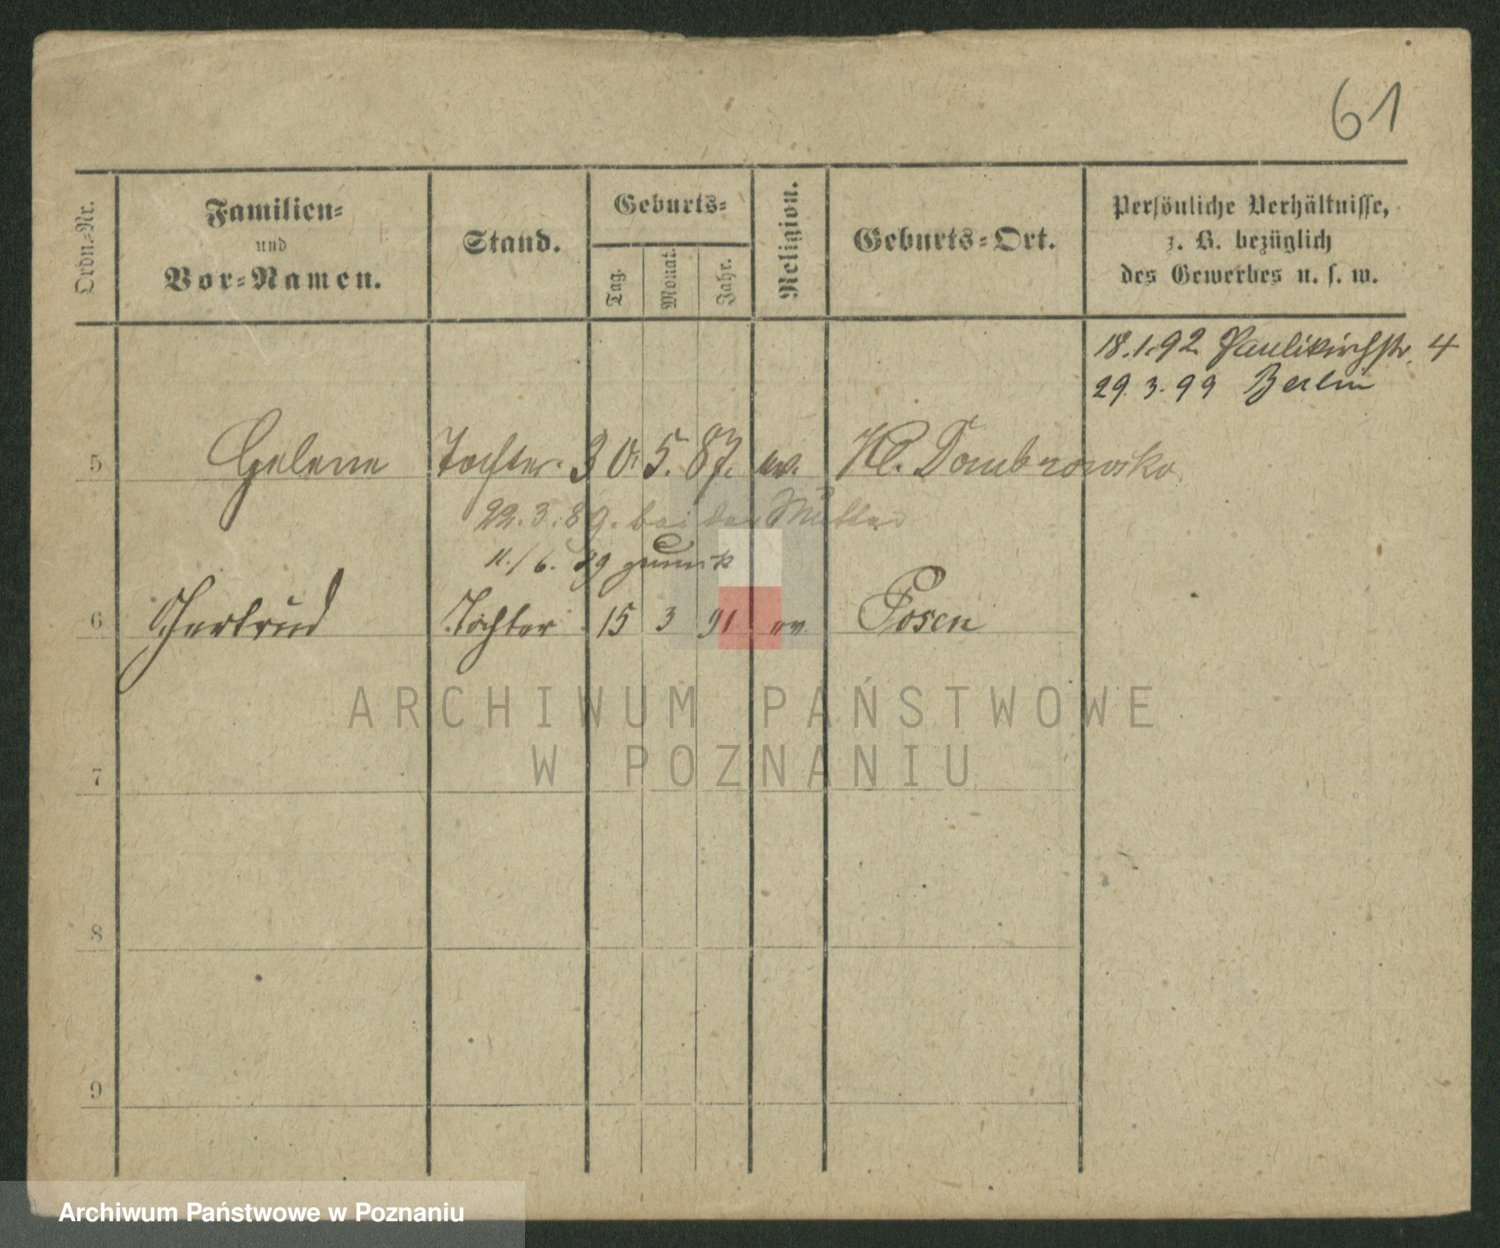 61
Ordn.-Nr.
Familien-
und
Vor-Namen.
Stand.
Geburts-
Tag.
Monat.
Jahr.
Religion.
Geburts-Ort.
Persönliche Verhältnisse,
z. B. bezüglich
des Gewerbes u. s. w.
18.1.92 Paulikirchstr. 4
29.3.99 Berlin
5 Helene Tochter 30. 5. 87. ev. Kl. Dombrowsko
22.3.89. bei der Mutter
11./6. 89 zurück
6 Gertrud Tochter 15 3 91 ev Posen
ARCHIWUM PAŃSTWOWE
W POZNANIU
7
8
9
Archiwum Państwowe w Poznaniu